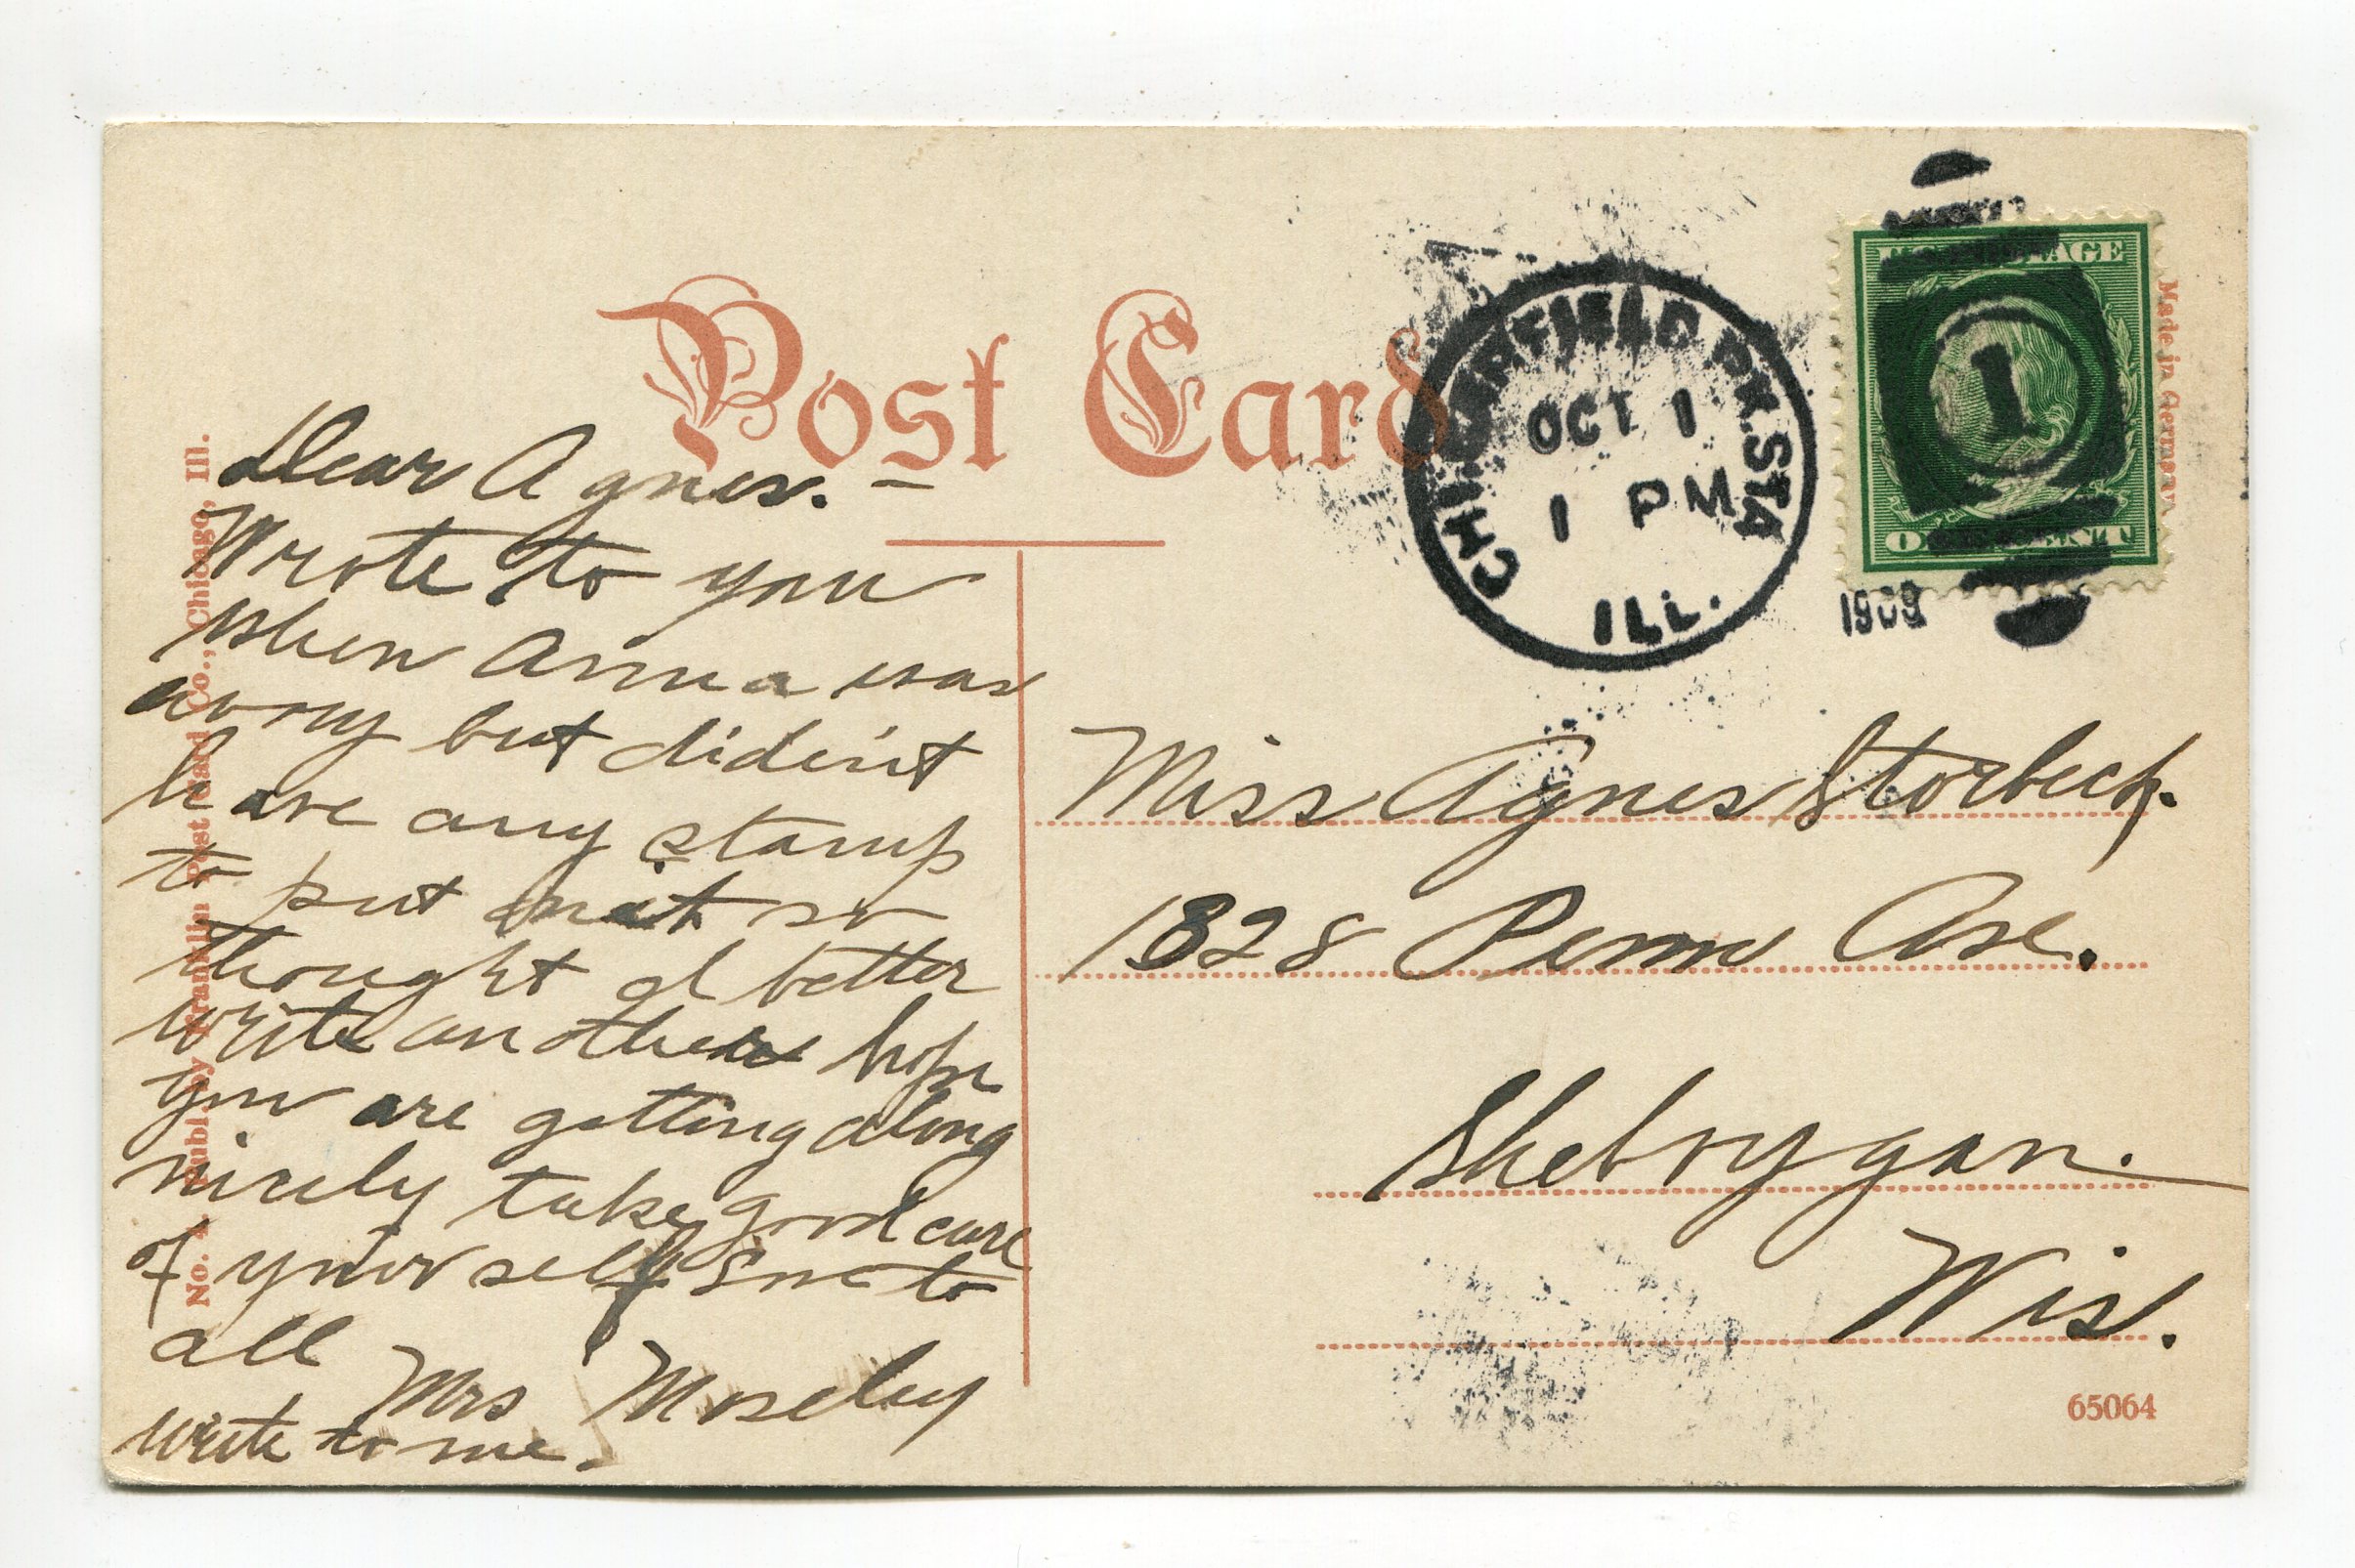 Post Card
Dear Agnes. —
Wrote to you
when Anna was
away but diden't
have any stamp
to put on it so
thought I better
write another hope
you are getting along
nicely take good care
of yourself to
all
Mrs Moseley
write to me.
No. Publ. by Franklin Post Card Co., Chicago, Ill.
CHI. GARFIELD PK. STA
OCT 1
1 PM
ILL.
1909
1
POSTAGE
ONE CENT
Made in Germany
Miss Agnes Storbeck.
1328 Penn Ave.
Sheboygan.
Wis.
65064